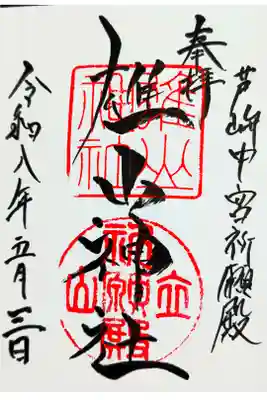 奉拝
芦峅中宮祈願殿
雄山神社
雄山神社
立山
祈願殿
令和八年五月三日